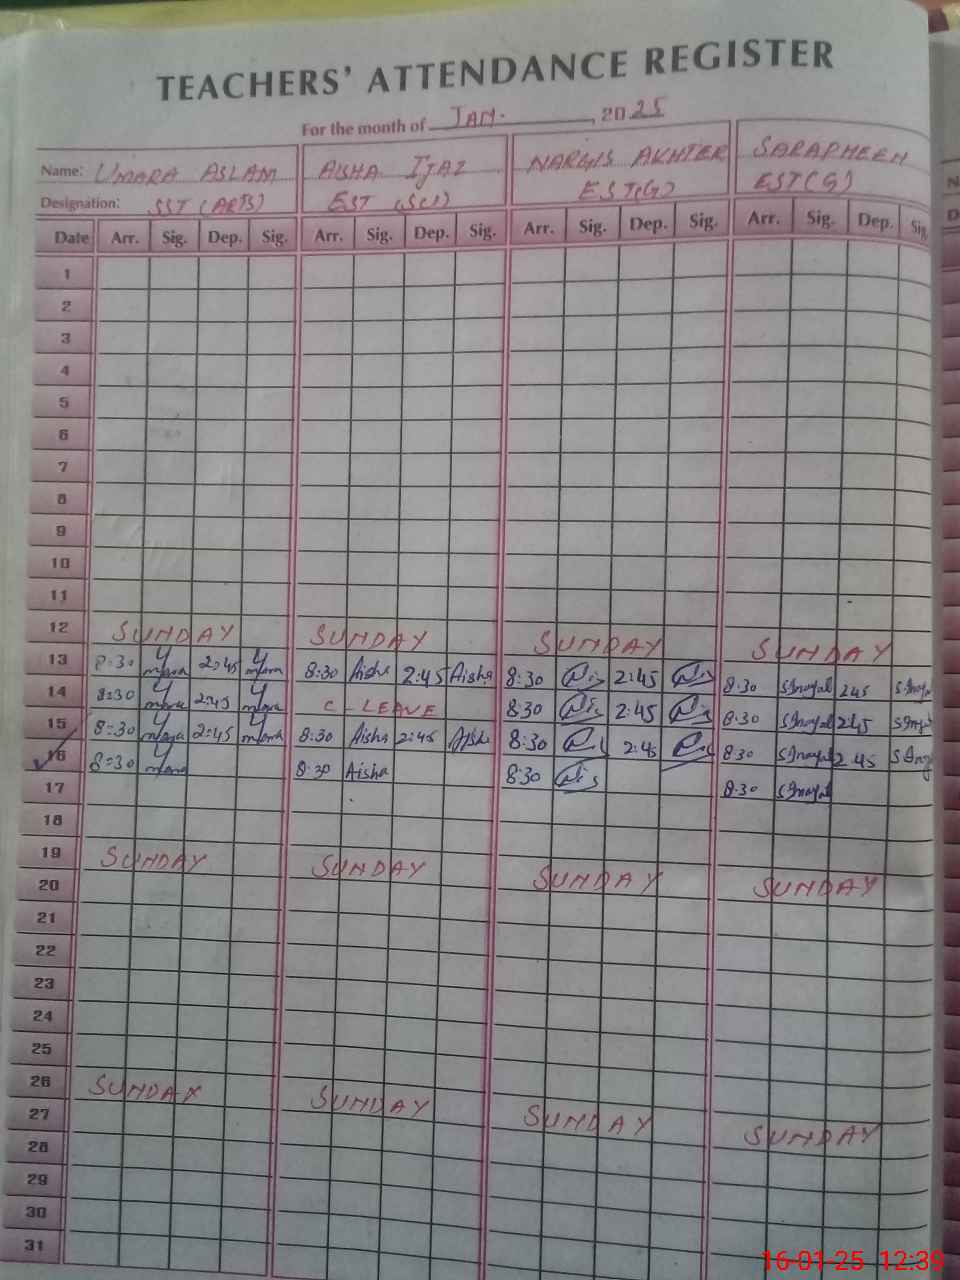 TEACHERS' ATTENDANCE REGISTER
For the month of JAN. , 2025
Name: UMARA ASLAM AISHA IJAZ NARGIS AKHTER SARAPHEEN
Designation: SST (ARTS) EST (SCI) EST(G) EST(G)
Date Arr. Sig. Dep. Sig. Arr. Sig. Dep. Sig. Arr. Sig. Dep. Sig. Arr. Sig. Dep. Sig
1
2
3
4
5
6
7
8
9
10
11
12 SUNDAY SUNDAY SUNDAY SUNDAY
13 8:30 Umara 2:45 Umara 8:30 Aisha 2:45 Aisha 8:30 2:45 8:30 2:45
14 8:30 Umara 2:45 Umara C-LEAVE 8:30 2:45 8:30 2:45
15 8:30 Umara 2:45 Umara 8:30 Aisha 2:45 Aisha 8:30 2:45 8:30 2:45
16 8:30 Umara 8:30 Aisha 8:30 8:30
17
18
19 SUNDAY SUNDAY SUNDAY SUNDAY
20
21
22
23
24
25
26 SUNDAY SUNDAY SUNDAY SUNDAY
27
28
29
30
31
16-01-25 12:39